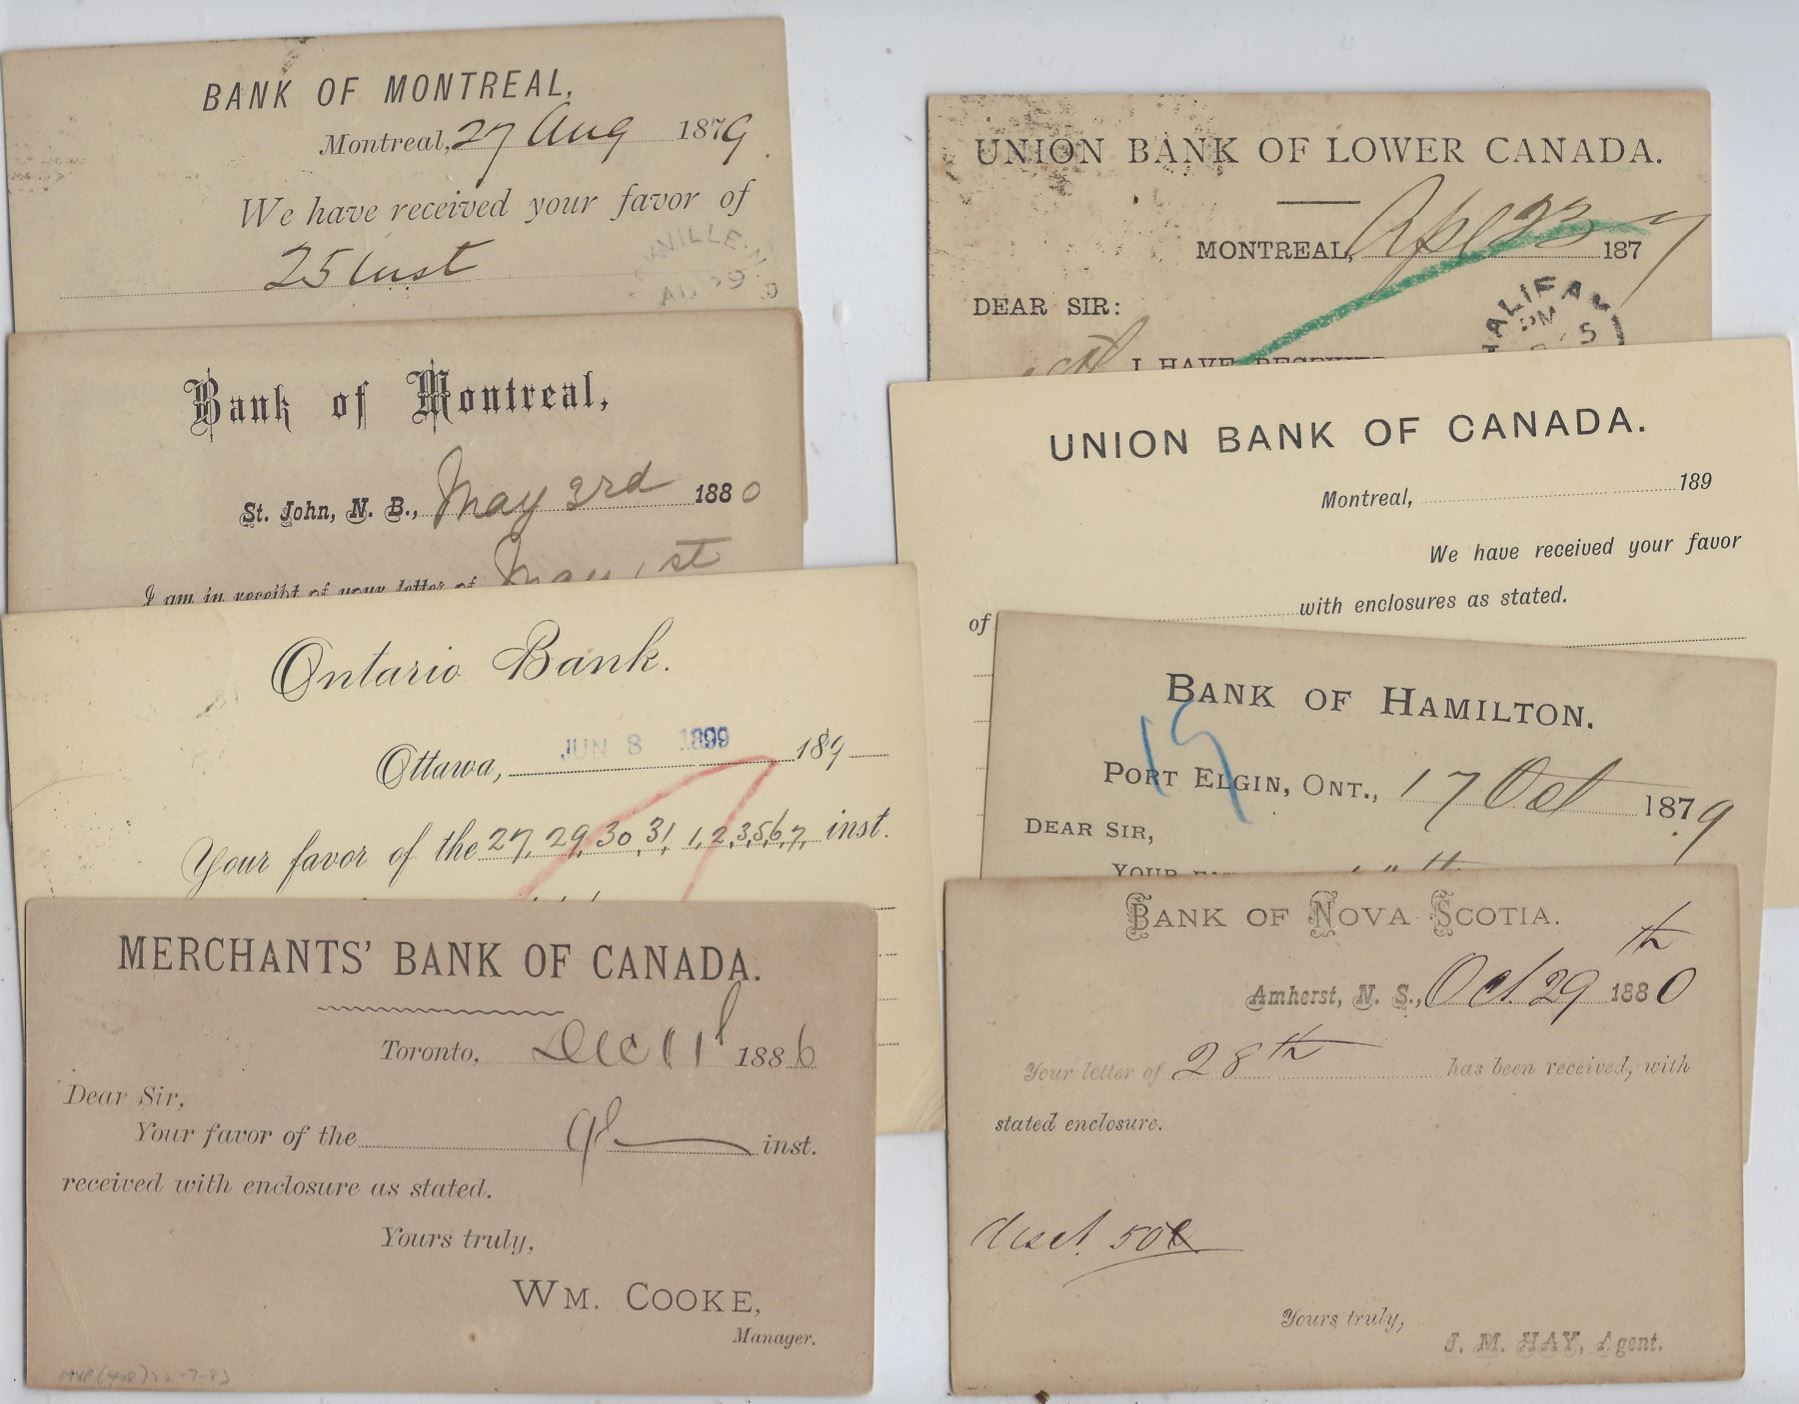 BANK OF MONTREAL,
Montreal, 27 Aug 1879.
We have received your favor of
25 inst
VILLE. N.
29
Bank of Montreal,
St. John, N. B., May 3rd 1880
I am in receipt of your letter of May 1st
Ontario Bank.
Ottawa, JUN 8 1899 189
Your favor of the 27, 29, 30, 31, 1, 2, 3, 5, 6, 7, inst.
MERCHANTS' BANK OF CANADA.
Toronto, Dec 11 1886
Dear Sir,
Your favor of the inst.
received with enclosure as stated.
Yours truly,
WM. COOKE,
Manager.
UNION BANK OF LOWER CANADA.
MONTREAL, Apl 23 1877
DEAR SIR:
HALIFAX
PM
I HAVE RECEIVED
UNION BANK OF CANADA.
Montreal, 189
We have received your favor
of with enclosures as stated.
BANK OF HAMILTON.
PORT ELGIN, ONT., 17 Oct 1879
DEAR SIR,
YOUR
BANK OF NOVA SCOTIA.
Amherst, N. S., Oct 29th 1880
Your letter of 28th has been received, with
stated enclosure.
disct. 50¢
Yours truly,
J. M. HAY, Agent.